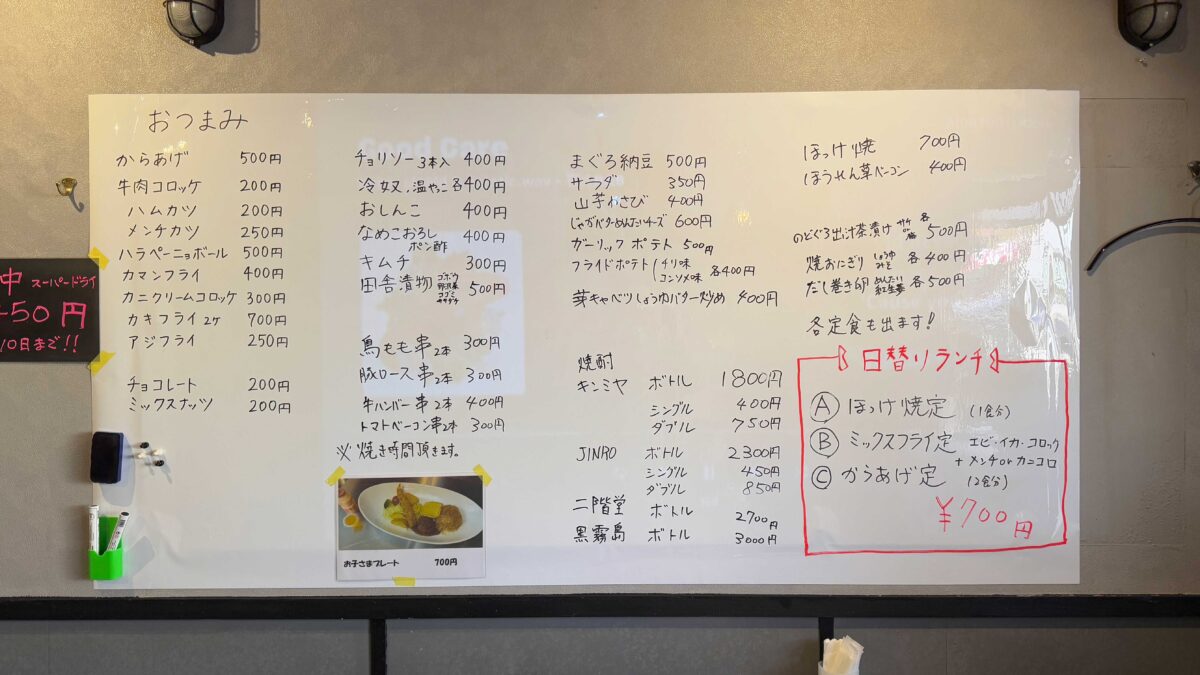 おつまみ
からあげ 500円
牛肉コロッケ 200円
ハムカツ 200円
メンチカツ 250円
ハラペーニョボール 500円
カマンフライ 400円
カニクリームコロッケ 300円
カキフライ 2ヶ 700円
アジフライ 250円
チョコレート 200円
ミックスナッツ 200円
チョリソー 3本入 400円
冷奴,温やっこ 各400円
おしんこ 400円
なめこおろし 400円
ポン酢
キムチ 300円
田舎漬物 500円
ゴボウ
野沢菜
鳥もも串 2本 300円
豚ロース串 2本 300円
牛ハンバー串 2本 400円
トマトベーコン串 2本 300円
※焼き時間頂きます。
お子さまプレート 700円
まぐろ納豆 500円
サラダ 350円
山芋わさび 400円
じゃがバターめんたいチーズ 600円
ガーリックポテト 500円
フライドポテト チリ味
コンソメ味 各400円
芽キャベツしょうゆバター炒め 400円
焼酎
キンミヤ ボトル 1800円
シングル 400円
ダブル 750円
JINRO ボトル 2300円
シングル 450円
ダブル 850円
二階堂 ボトル 2700円
黒霧島 ボトル 3000円
ほっけ焼 700円
ほうせん草ベーコン 400円
のどぐろ出汁茶漬け サケ 各500円
焼おにぎり しょうゆ
みそ 各400円
だし巻き卵 めんたい
紅生姜 各500円
各定食も出ます!
日替りランチ
A ほっけ焼定 (1食分)
B ミックスフライ定 エビ・イカ・コロッケ
+メンチorカニコロ
C からあげ定 (12食分)
¥700円
中 スーパードライ
50円
10日まで!!